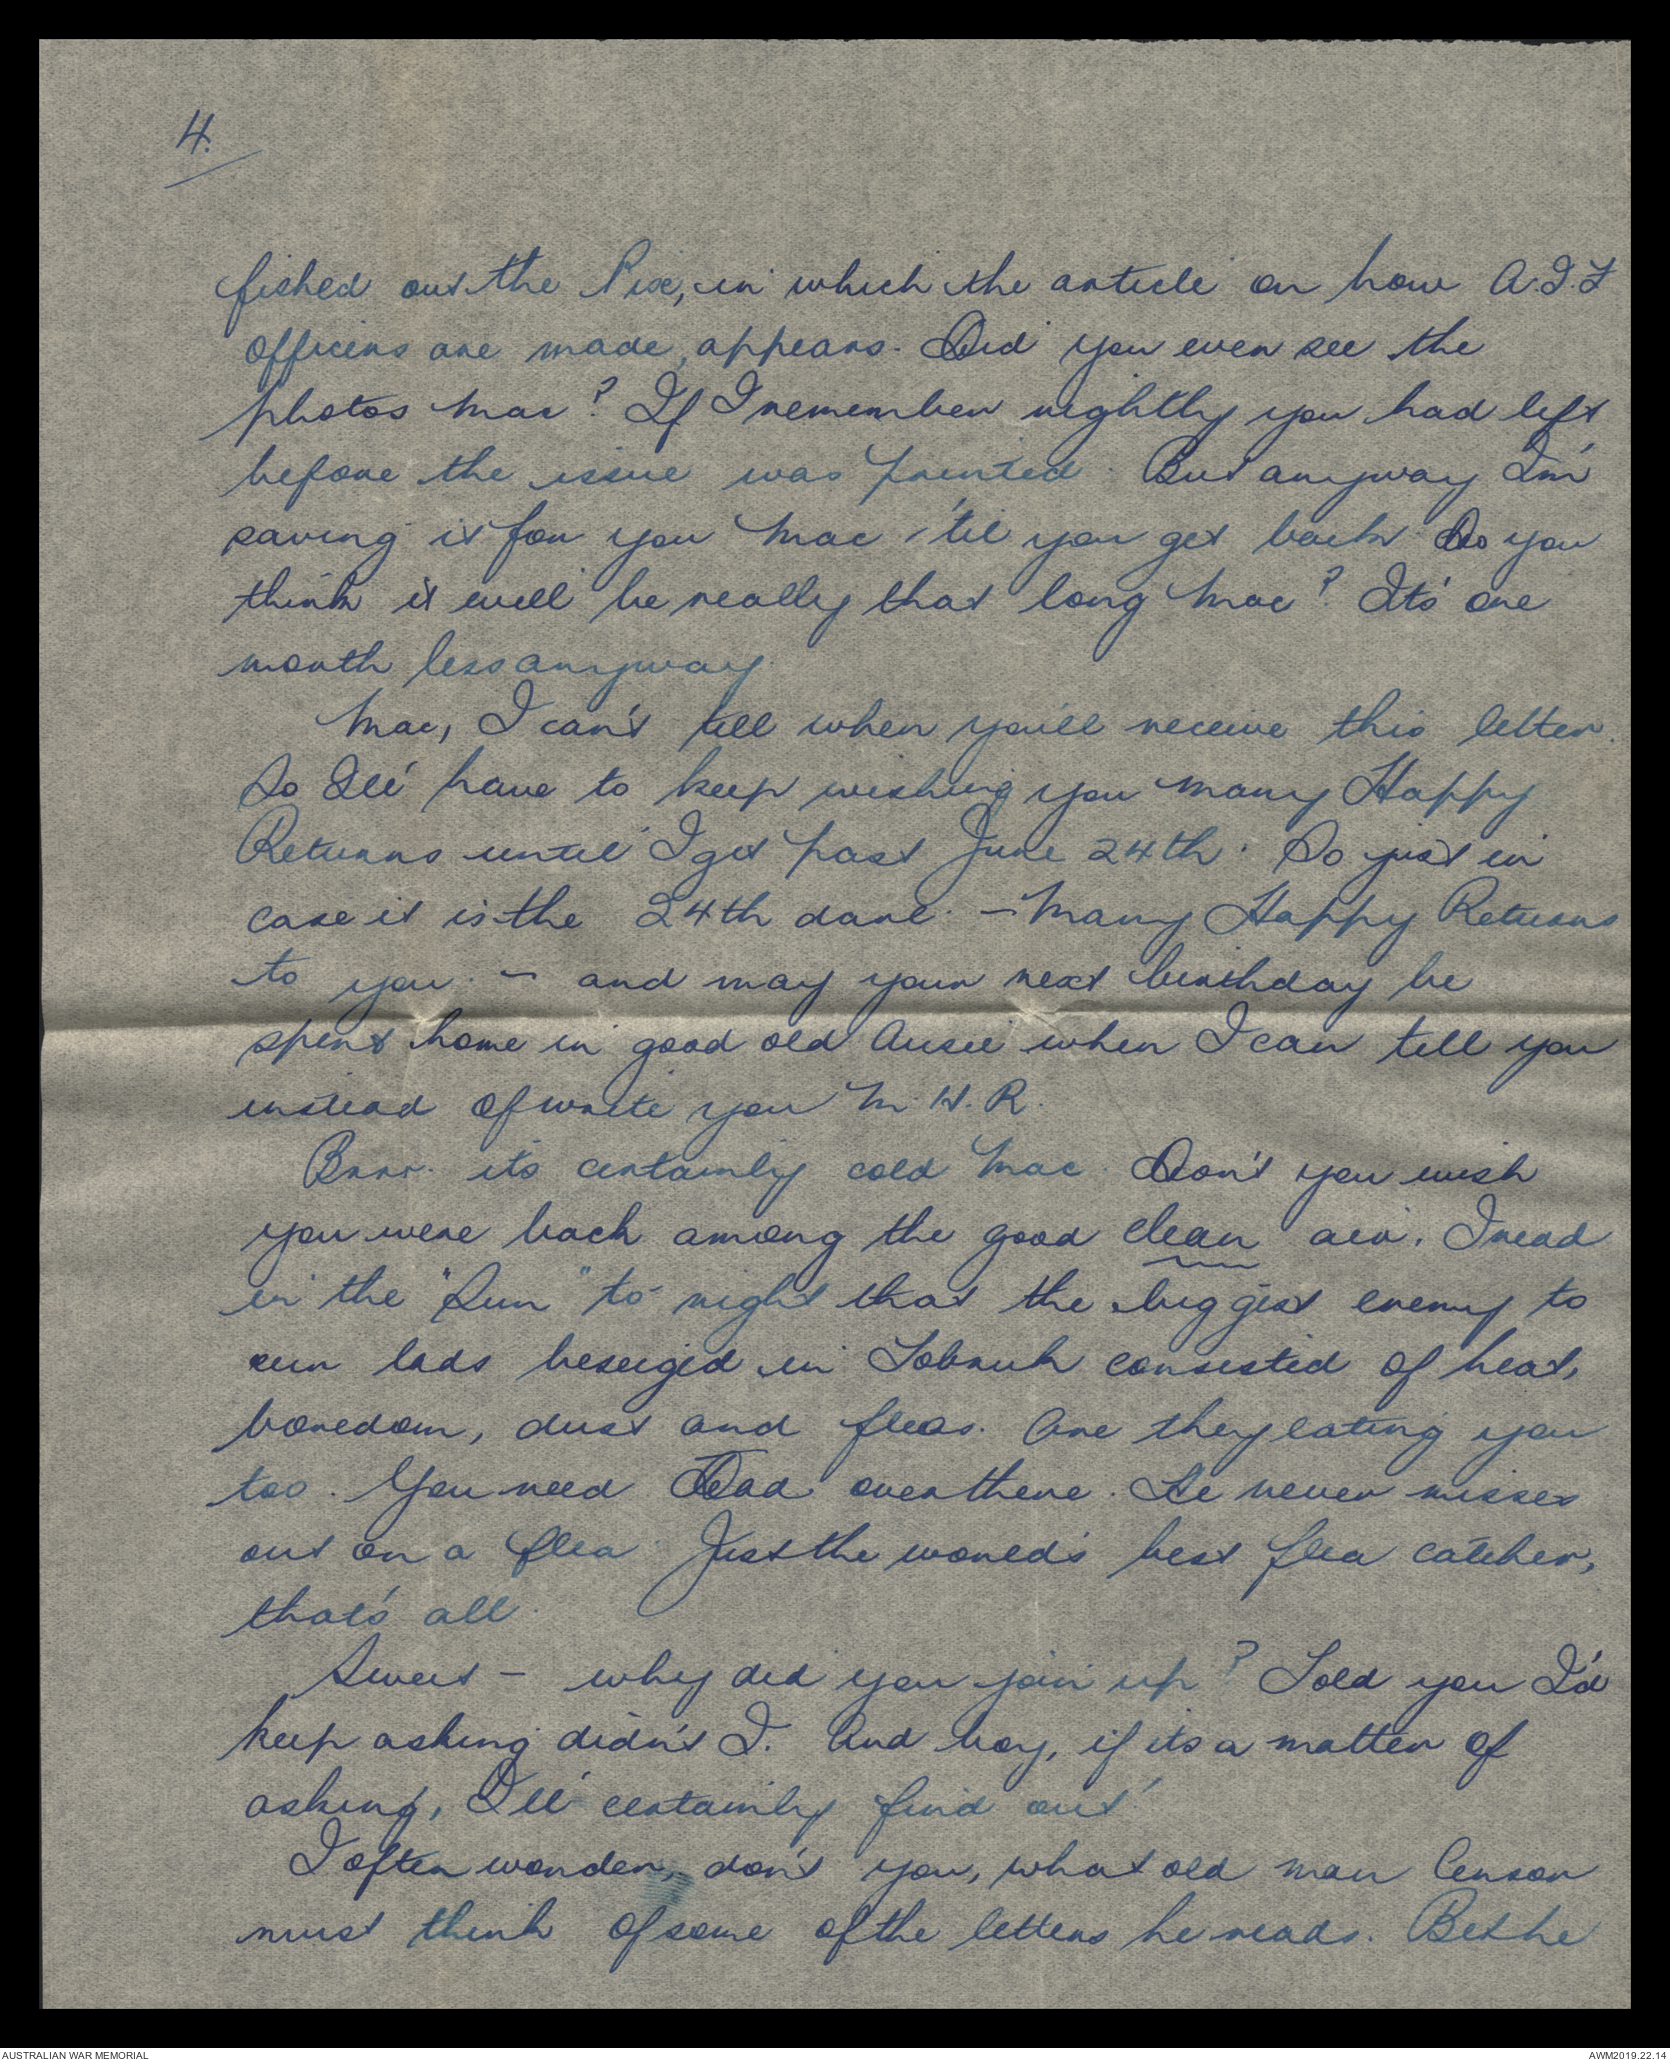 4.
fished out the Pix, in which the article on how A.I.F
officers are made, appears. Did you ever see the
photos Mac? If I remember rightly you had left
before the issue was printed. But anyway I'm
saving it for you Mac 'til you get back. Do you
think it will be really that long Mac? It's one
month less anyway.
Mac, I can't tell when you'll receive this letter.
So I'll have to keep wishing you Many Happy
Returns until I get past June 24th. So just in
case it is the 24th darl. - Many Happy Returns
to you. - and may your next birthday be
spent home in good old Aussie when I can tell you
instead of write you M.H.R.
Brrr. its certainly cold Mac. Don't you wish
you were back among the good clean air. I read
in the "Sun" to-night that the biggest enemy to
our lads beseiged in Tobruk consisted of heat,
boredom, dust and fleas. Are they eating you
too. You need Dad over there. He never misses
out on a flea. Just the world's best flea catcher,
that's all.
Sweet - why did you join up? Told you I'd
keep asking didn't I. And boy, if its a matter of
asking, I'll certainly find out!
I often wonder, don't you, what old man Censor
must think of some of the letters he reads. Bet he
AUSTRALIAN WAR MEMORIAL
AWM2019.22.14